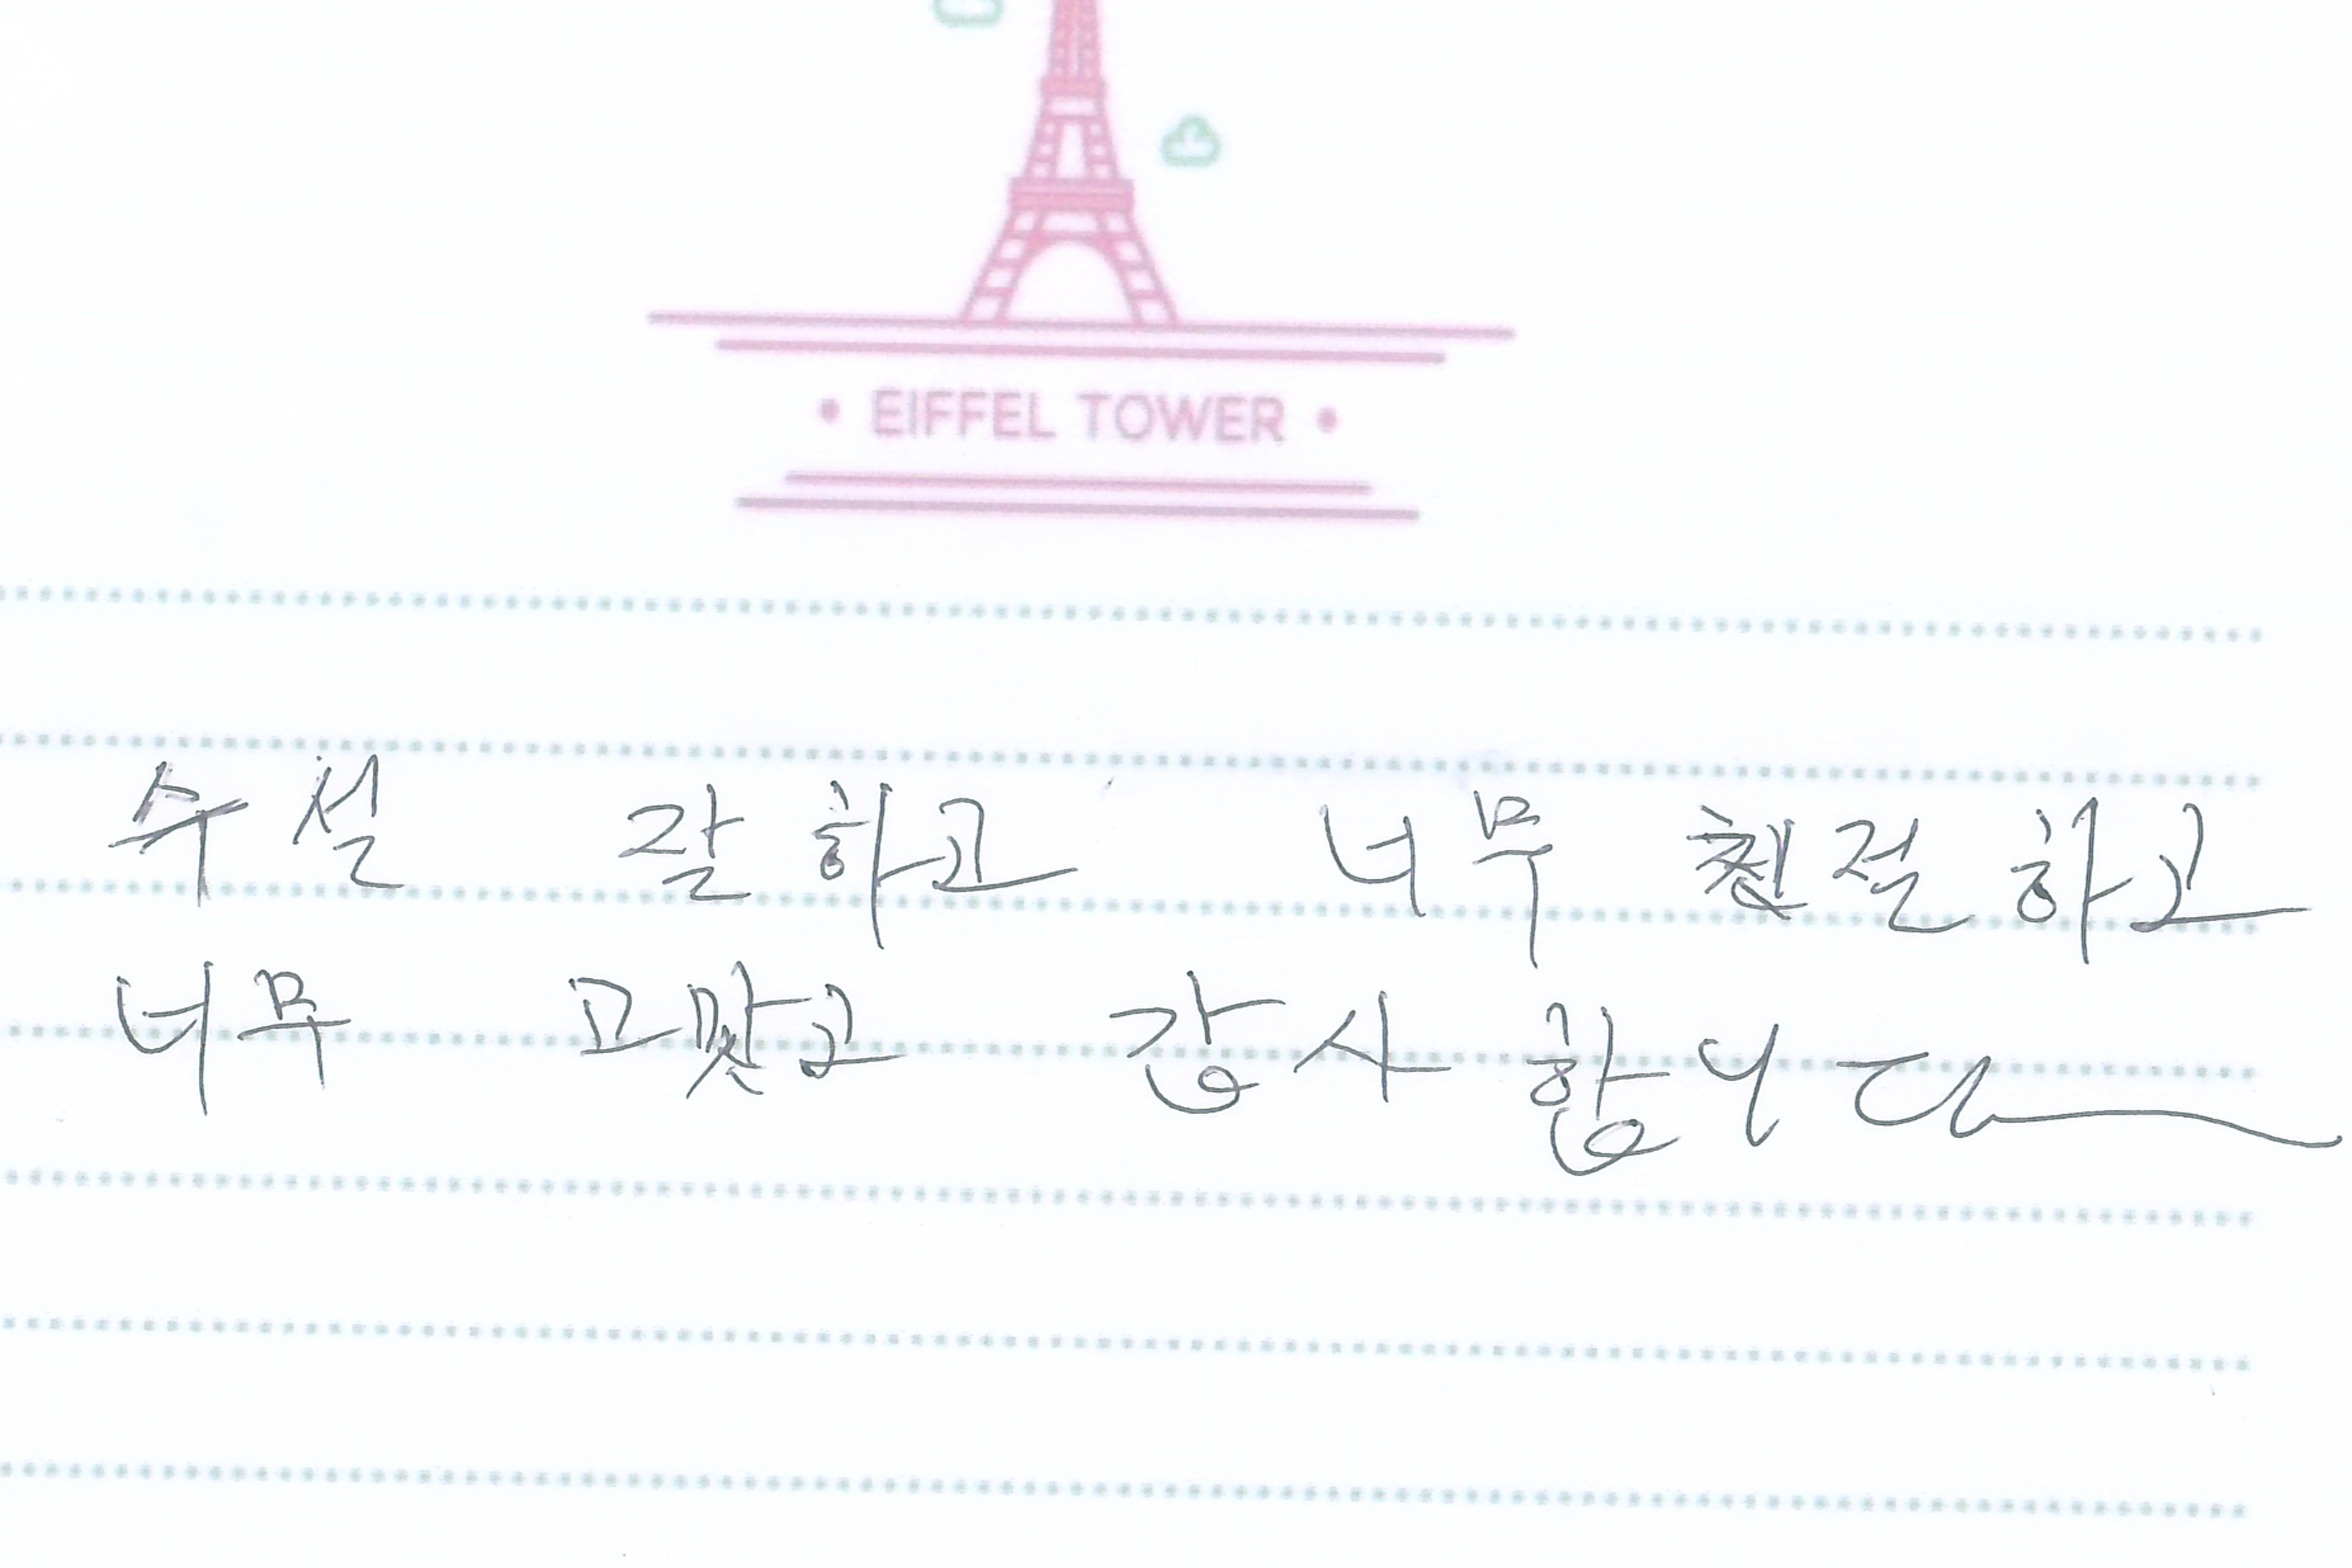 EIFFEL TOWER
수설 잘하고 너무 친절하고
너무 고맛고 감사합니다